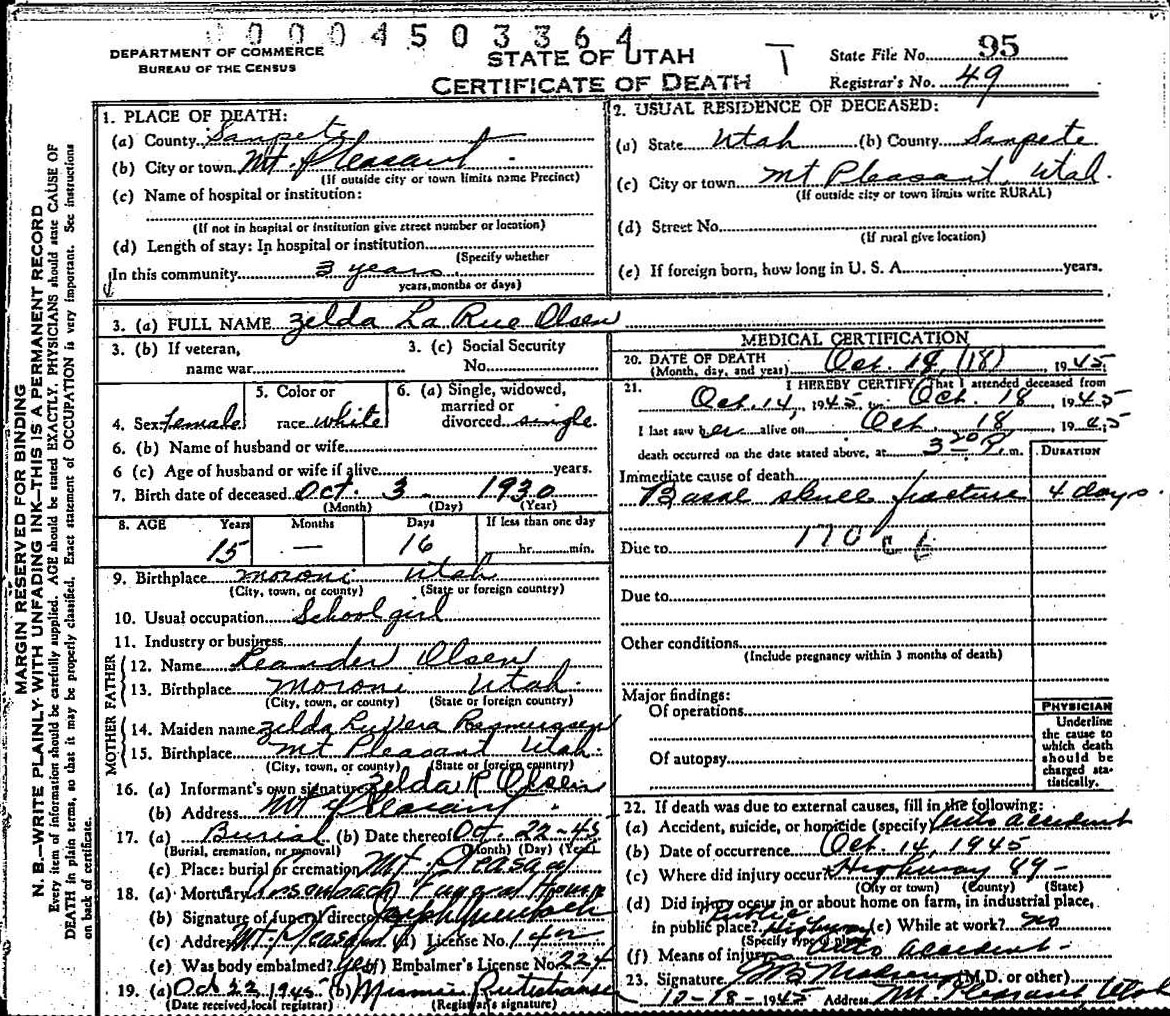 0004503364
DEPARTMENT OF COMMERCE
BUREAU OF THE CENSUS
STATE OF UTAH
CERTIFICATE OF DEATH
T
State File No. 95
Registrar's No. 49
MARGIN RESERVED FOR BINDING
N. B.—WRITE PLAINLY WITH UNFADING INK—THIS IS A PERMANENT RECORD
Every item of information should be carefully supplied. AGE should be stated EXACTLY. PHYSICIANS should state CAUSE OF
DEATH in plain terms, so that it may be properly classified. Exact statement of OCCUPATION is very important. See instructions
on back of certificate.
1. PLACE OF DEATH:
(a) County Sanpete
(b) City or town Mt. Pleasant
(If outside city or town limits name Precinct)
(c) Name of hospital or institution:
(If not in hospital or institution give street number or location)
(d) Length of stay: In hospital or institution
(Specify whether
In this community 3 years
years, months or days)
2. USUAL RESIDENCE OF DECEASED:
(a) State Utah (b) County Sanpete
(c) City or town Mt Pleasant, Utah.
(If outside city or town limits write RURAL)
(d) Street No.
(If rural give location)
(e) If foreign born, how long in U. S. A. years.
3. (a) FULL NAME Zelda La Rue Olsen
3. (b) If veteran, 3. (c) Social Security
name war No.
4. Sex female 5. Color or race white 6. (a) Single, widowed, married or divorced single.
6. (b) Name of husband or wife
6 (c) Age of husband or wife if alive years.
7. Birth date of deceased Oct. 3 1930
(Month) (Day) (Year)
8. AGE Years Months Days If less than one day
15 — 16 hr. min.
9. Birthplace Moroni Utah
(City, town, or county) (State or foreign country)
10. Usual occupation School girl
11. Industry or business
FATHER
12. Name Leander Olsen
13. Birthplace Moroni Utah.
(City, town, or county) (State or foreign country)
MOTHER
14. Maiden name Zelda Rasmussen
15. Birthplace Mt Pleasant Utah.
(City, town, or county) (State or foreign country)
16. (a) Informant's own signature Zelda R Olsen
(b) Address Mt Pleasant.
17. (a) Burial (b) Date thereof Oct. 22-45
(Burial, cremation, or removal) (Month) (Day) (Year)
(c) Place: burial or cremation Mt. Pleasant
18. (a) Mortuary Funeral Home
(b) Signature of funeral director
(c) Address Mt. Pleasant (d) License No.
(e) Was body embalmed? Yes (f) Embalmer's License No. 224
19. (a) Oct 22, 1945 (b)
(Date received local registrar) (Registrar's signature)
MEDICAL CERTIFICATION
20. DATE OF DEATH Oct. 19, (18) 1945
(Month, day, and year)
21. I HEREBY CERTIFY, That I attended deceased from
Oct. 14, 1945 to Oct. 18, 1945
I last saw her alive on Oct. 18, 1945
death occurred on the date stated above, at 3 20 P. m.
DURATION
Immediate cause of death
Basal skull fracture 4 days
Due to 170 c 6
Due to
Other conditions
(Include pregnancy within 3 months of death)
Major findings:
Of operations
Of autopsy
PHYSICIAN
Underline
the cause to
which death
should be
charged sta-
tistically.
22. If death was due to external causes, fill in the following:
(a) Accident, suicide, or homicide (specify) Auto Accident
(b) Date of occurrence Oct. 14, 1945
(c) Where did injury occur? Highway 89 -
(City or town) (County) (State)
(d) Did injury occur in or about home on farm, in industrial place,
in public place? Public Highway (e) While at work? no
(Specify type of place)
(f) Means of injury Auto Accident -
23. Signature (M.D. or other)
10-18-1945 Address Mt. Pleasant, Utah